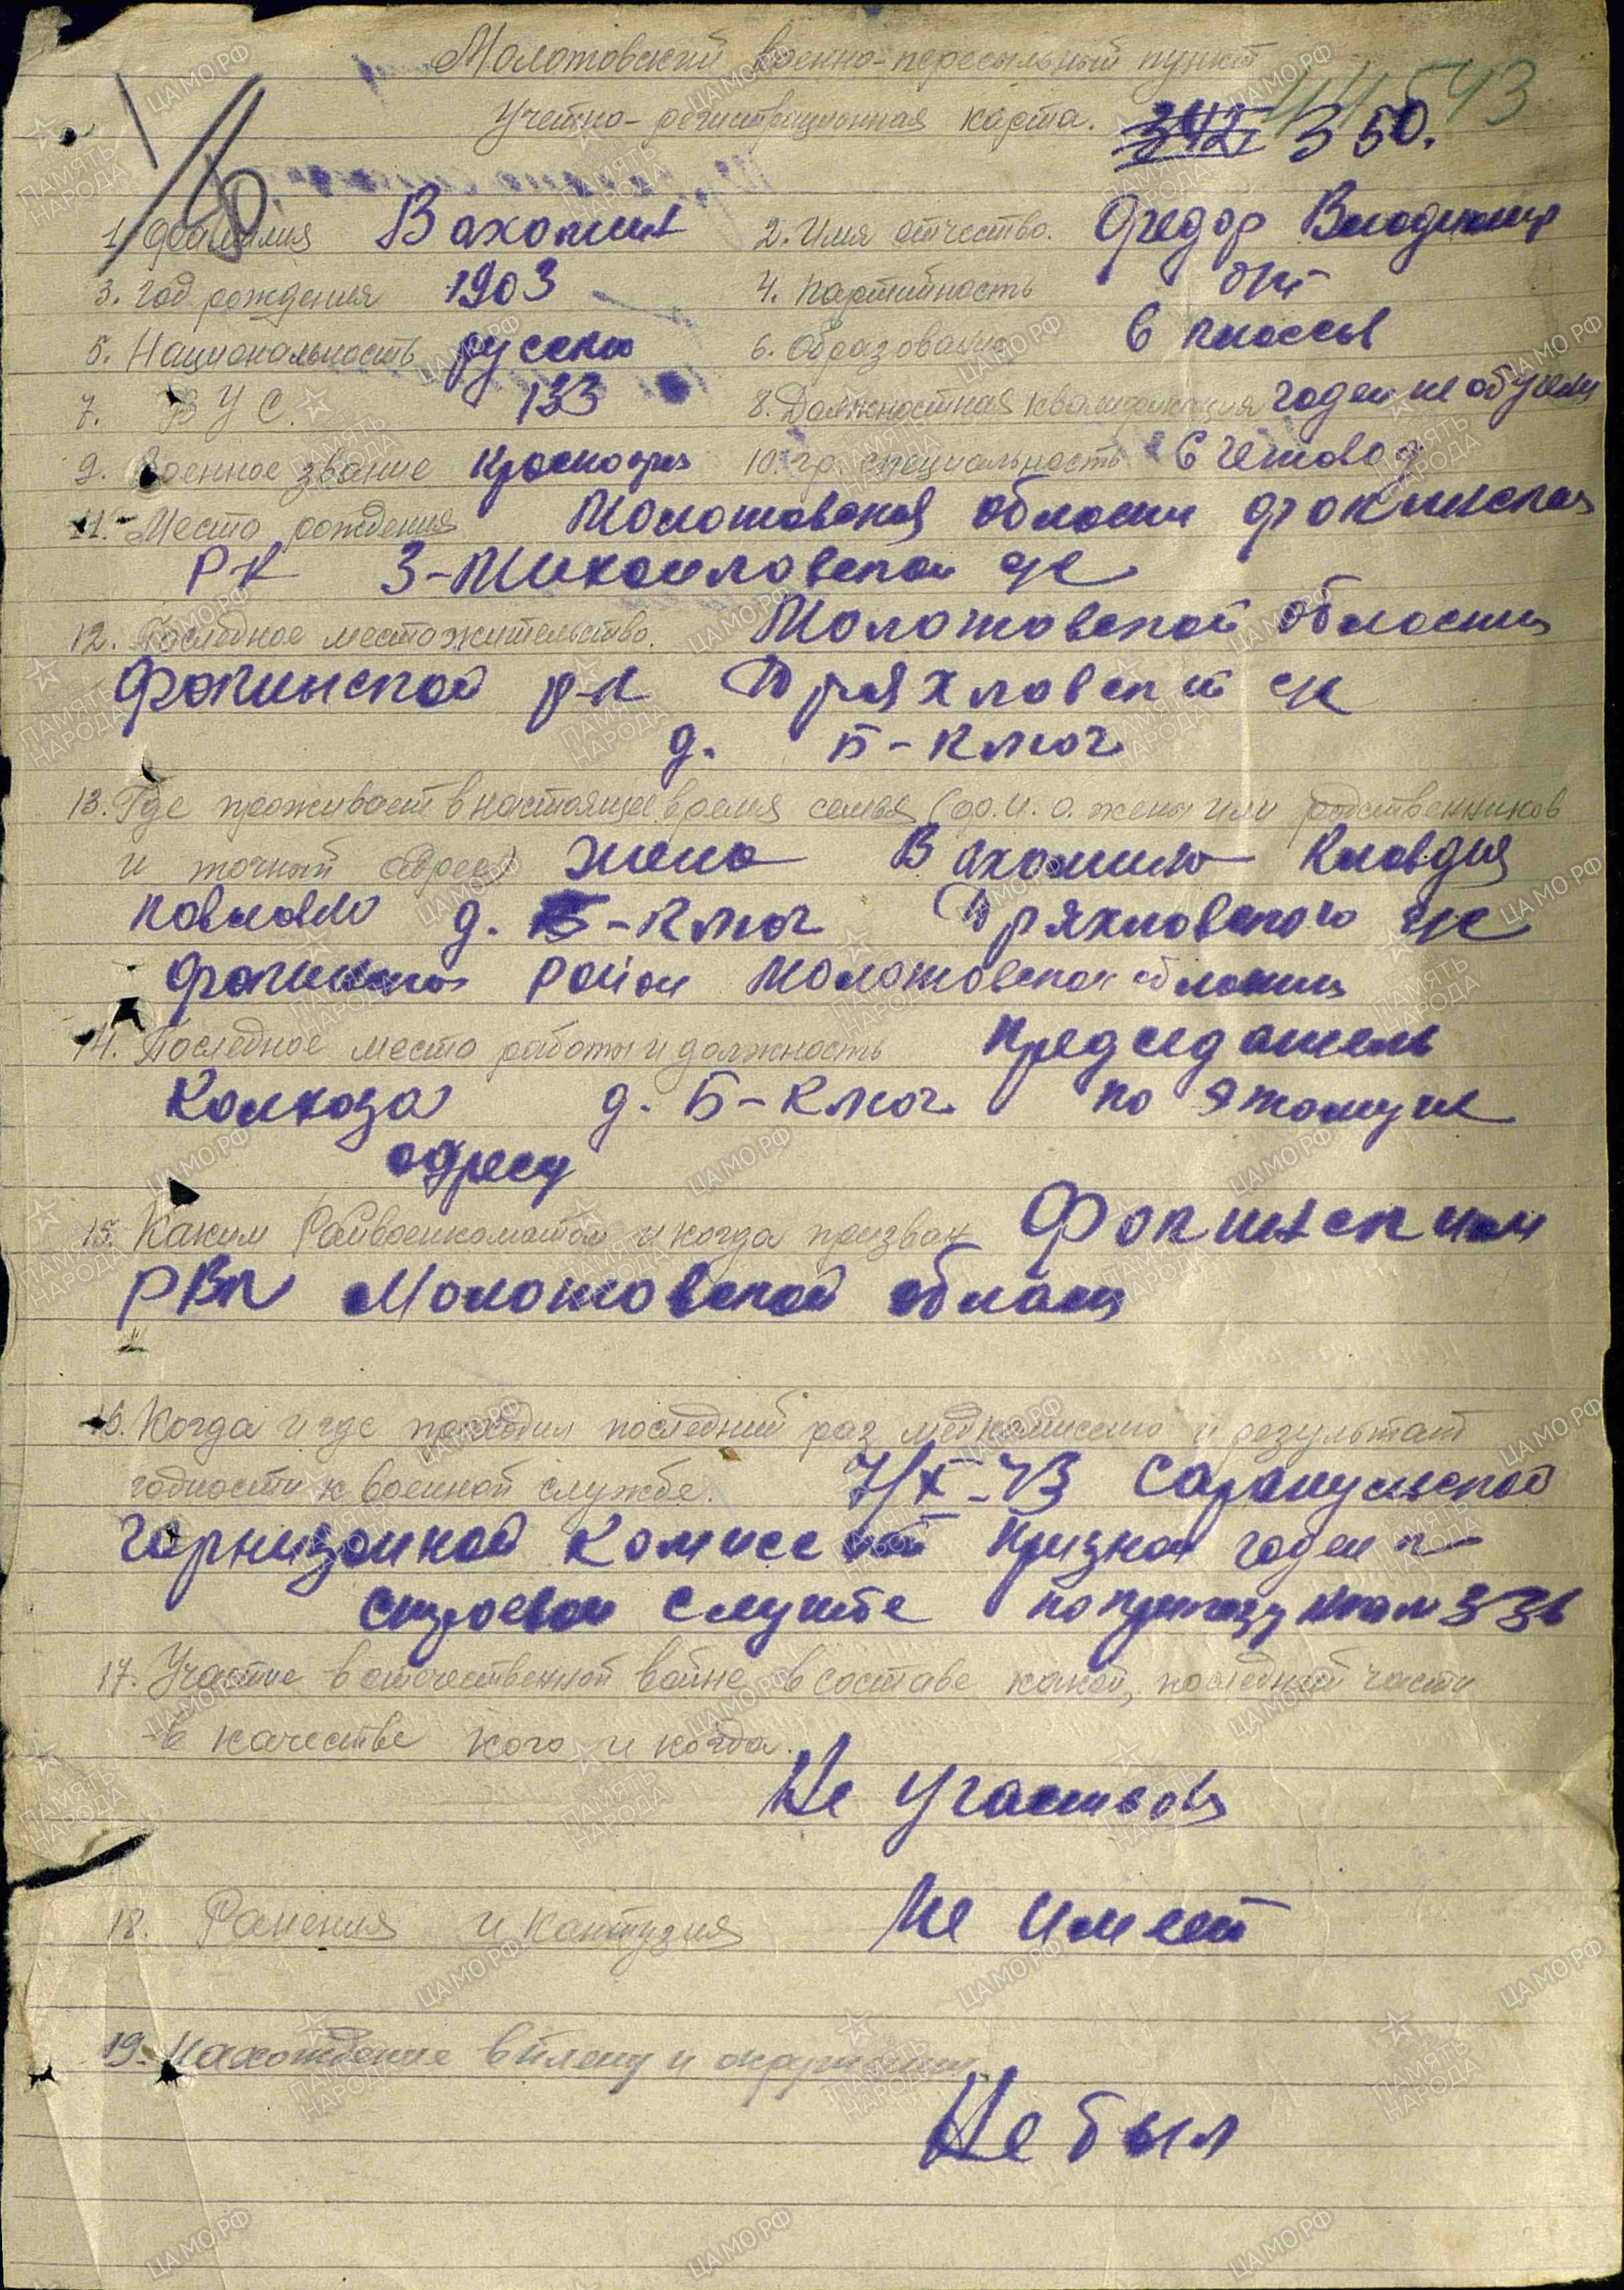 Молотовский военно-пересыльный пункт 44543
Учетно-регистрационная карта. 342 350.
1. Фамилия Вахонин 2. Имя отчество. Федор Владимир
3. Год рождения 1903 4. Партийность
5. Национальность русский 6. Образование 6 классов
7. ВУС. 133 8. Должностная квалификация годен не обучен
9. Военное звание красноарм 10. гр. специальность Счетовод
11. Место рождения Молотовская область Фокинская
Р-К З-Михайловской с/с
12. Последнее местожительство. Молотовской области
Фокинской р-к Дряхловский с/с
д. Б-Ключ
13. Где проживает в настоящее время семья (ф. и. о. жены или родственников
и точный адрес) жена Вахонина Клавдия
Павлов д. Б-Ключ Дряхловского с/с
район Молотовская область
14. Последнее место работы и должность Председатель
Колхоза д. Б-Ключ по этому же
адресу
15. Каким Райвоенкоматом и когда призван Фокинским
РВК Молотовской области
16. Когда и где проходил последний раз медкомиссию и результат
годности к военной службе. 7/X-43 Сарапульской
гарнизонной Комиссией признан годен к
строевой службе по приказу 336
17. Участие в отечественной войне в составе какой, последний части
в качестве кого и когда. Не участвов
18. Ранения и контузия Не имеет
19. Нахождение в плену и окружении.
Не был